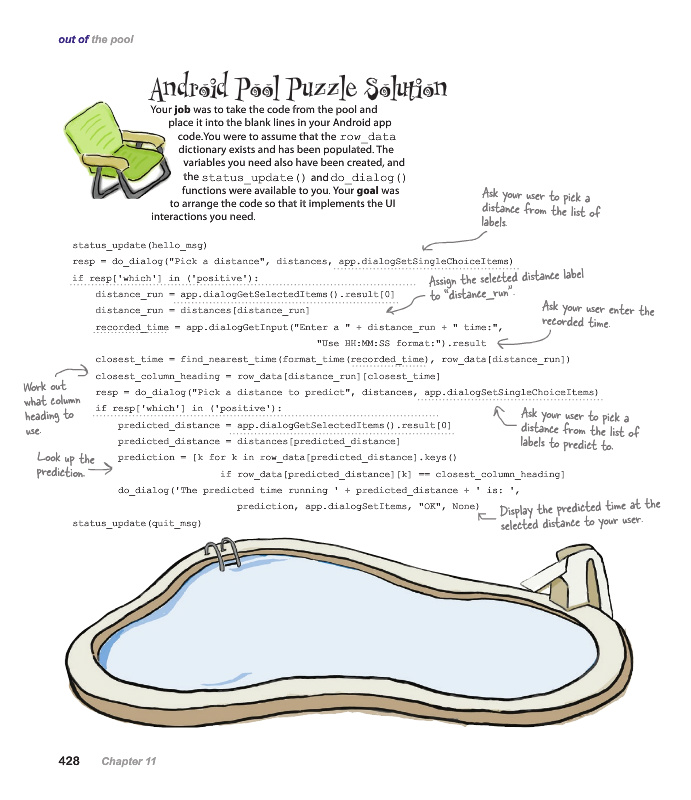 out of the pool
Android Pool Puzzle Solution
Your job was to take the code from the pool and
place it into the blank lines in your Android app
code.You were to assume that the row_data
dictionary exists and has been populated. The
variables you need also have been created, and
the status_update() and do_dialog()
functions were available to you. Your goal was
to arrange the code so that it implements the UI
interactions you need.
Ask your user to pick a
distance from the list of
labels.
status_update(hello_msg)
resp = do_dialog("Pick a distance", distances, app.dialogSetSingleChoiceItems)
if resp['which'] in ('positive'):
distance_run = app.dialogGetSelectedItems().result[0]
distance_run = distances[distance_run]
Assign the selected distance label
to "distance_run".
recorded_time = app.dialogGetInput("Enter a " + distance_run + " time:",
"Use HH:MM:SS format:").result
Ask your user enter the
recorded time.
closest_time = find_nearest_time(format_time(recorded_time), row_data[distance_run])
closest_column_heading = row_data[distance_run][closest_time]
Work out
what column
heading to
use.
resp = do_dialog("Pick a distance to predict", distances, app.dialogSetSingleChoiceItems)
if resp['which'] in ('positive'):
predicted_distance = app.dialogGetSelectedItems().result[0]
predicted_distance = distances[predicted_distance]
Ask your user to pick a
distance from the list of
labels to predict to.
Look up the
prediction.
prediction = [k for k in row_data[predicted_distance].keys()
if row_data[predicted_distance][k] == closest_column_heading]
do_dialog('The predicted time running ' + predicted_distance + ' is: ',
prediction, app.dialogSetItems, "OK", None)
Display the predicted time at the
selected distance to your user.
status_update(quit_msg)
428 Chapter 11